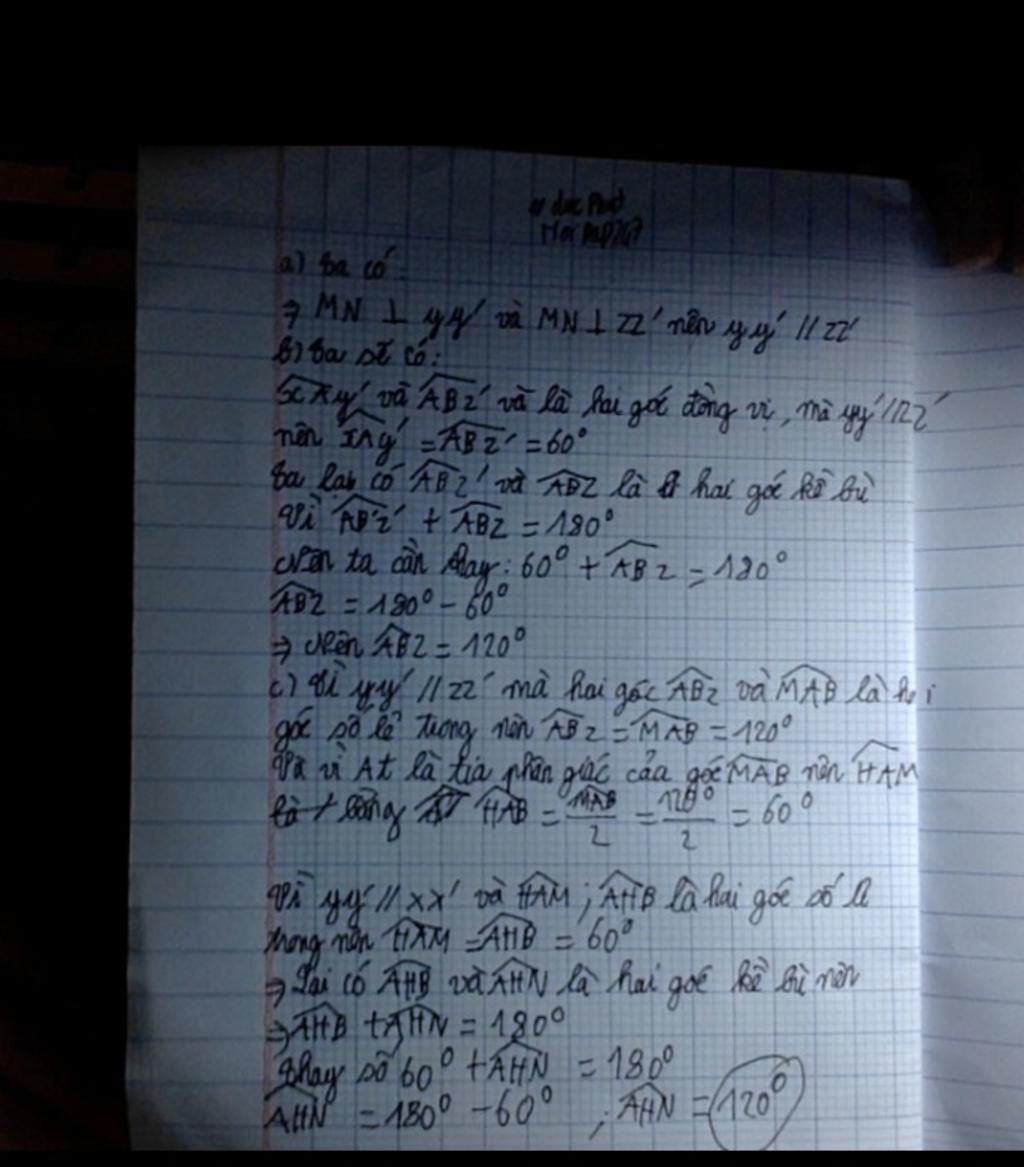 a) Ta có:
⇒ MN ⊥ yy' và MN ⊥ zz' nên yy' // zz'
b) Ta sẽ có:
xAy' và ABz' và là hai góc đồng vị, mà yy' // zz'
nên xAy' = ABz' = 60°
Ta lại có ABz' và ABz là hai góc kề bù
Vì ABz' + ABz = 180°
Nên ta cần thay: 60° + ABz = 180°
ABz = 180° - 60°
⇒ Nên ABz = 120°
c) Vì yy' // zz' mà hai góc ABz và MAB là hai
góc sole trong nên ABz = MAB = 120°
Và vì At là tia phân giác của góc MAB nên HAM
bằng HAB = MAB/2 = 120°/2 = 60°
Vì yy' // xx' và HAM ; AHB là hai góc số le
trong nên HAM = AHB = 60°
⇒ Lại có AHB và AHN là hai góc kề bù nên
⇒ AHB + AHN = 180°
Thay số 60° + AHN = 180°
AHN = 180° - 60° ; AHN = 120°